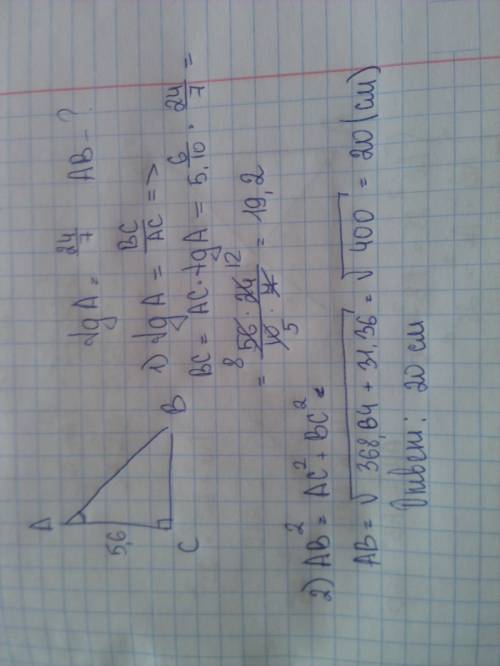 A
5,6
C
B
tg A = 24/7   AB - ?
1) tg A = BC/AC =>
BC = AC · tg A = 5 6/10 · 24/7 =
= 56 · 24 / 10 · 7 = 19,2
8 12
5
2) AB² = AC² + BC²
AB = √368,64 + 31,36 = √400 = 20 (см)
Ответ: 20 см